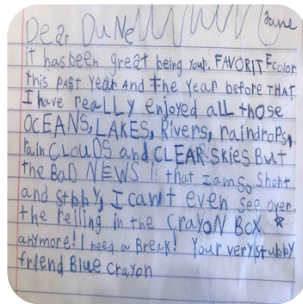 Dear DuNe June
it has been great being your FAVORITE color
this PAST year AND The Year before THAT
I have reaLLY enjoyed all those
OCEANS, LAKES, Rivers, raindrops,
rain CLoUDS and CLEAR SKies But
the BaD NEWS is that I am so short
and stubby, I can't even see over
the reiling in the CRAYON BOX
anymore! I need a Break! Your very stubby
friend Blue crayon